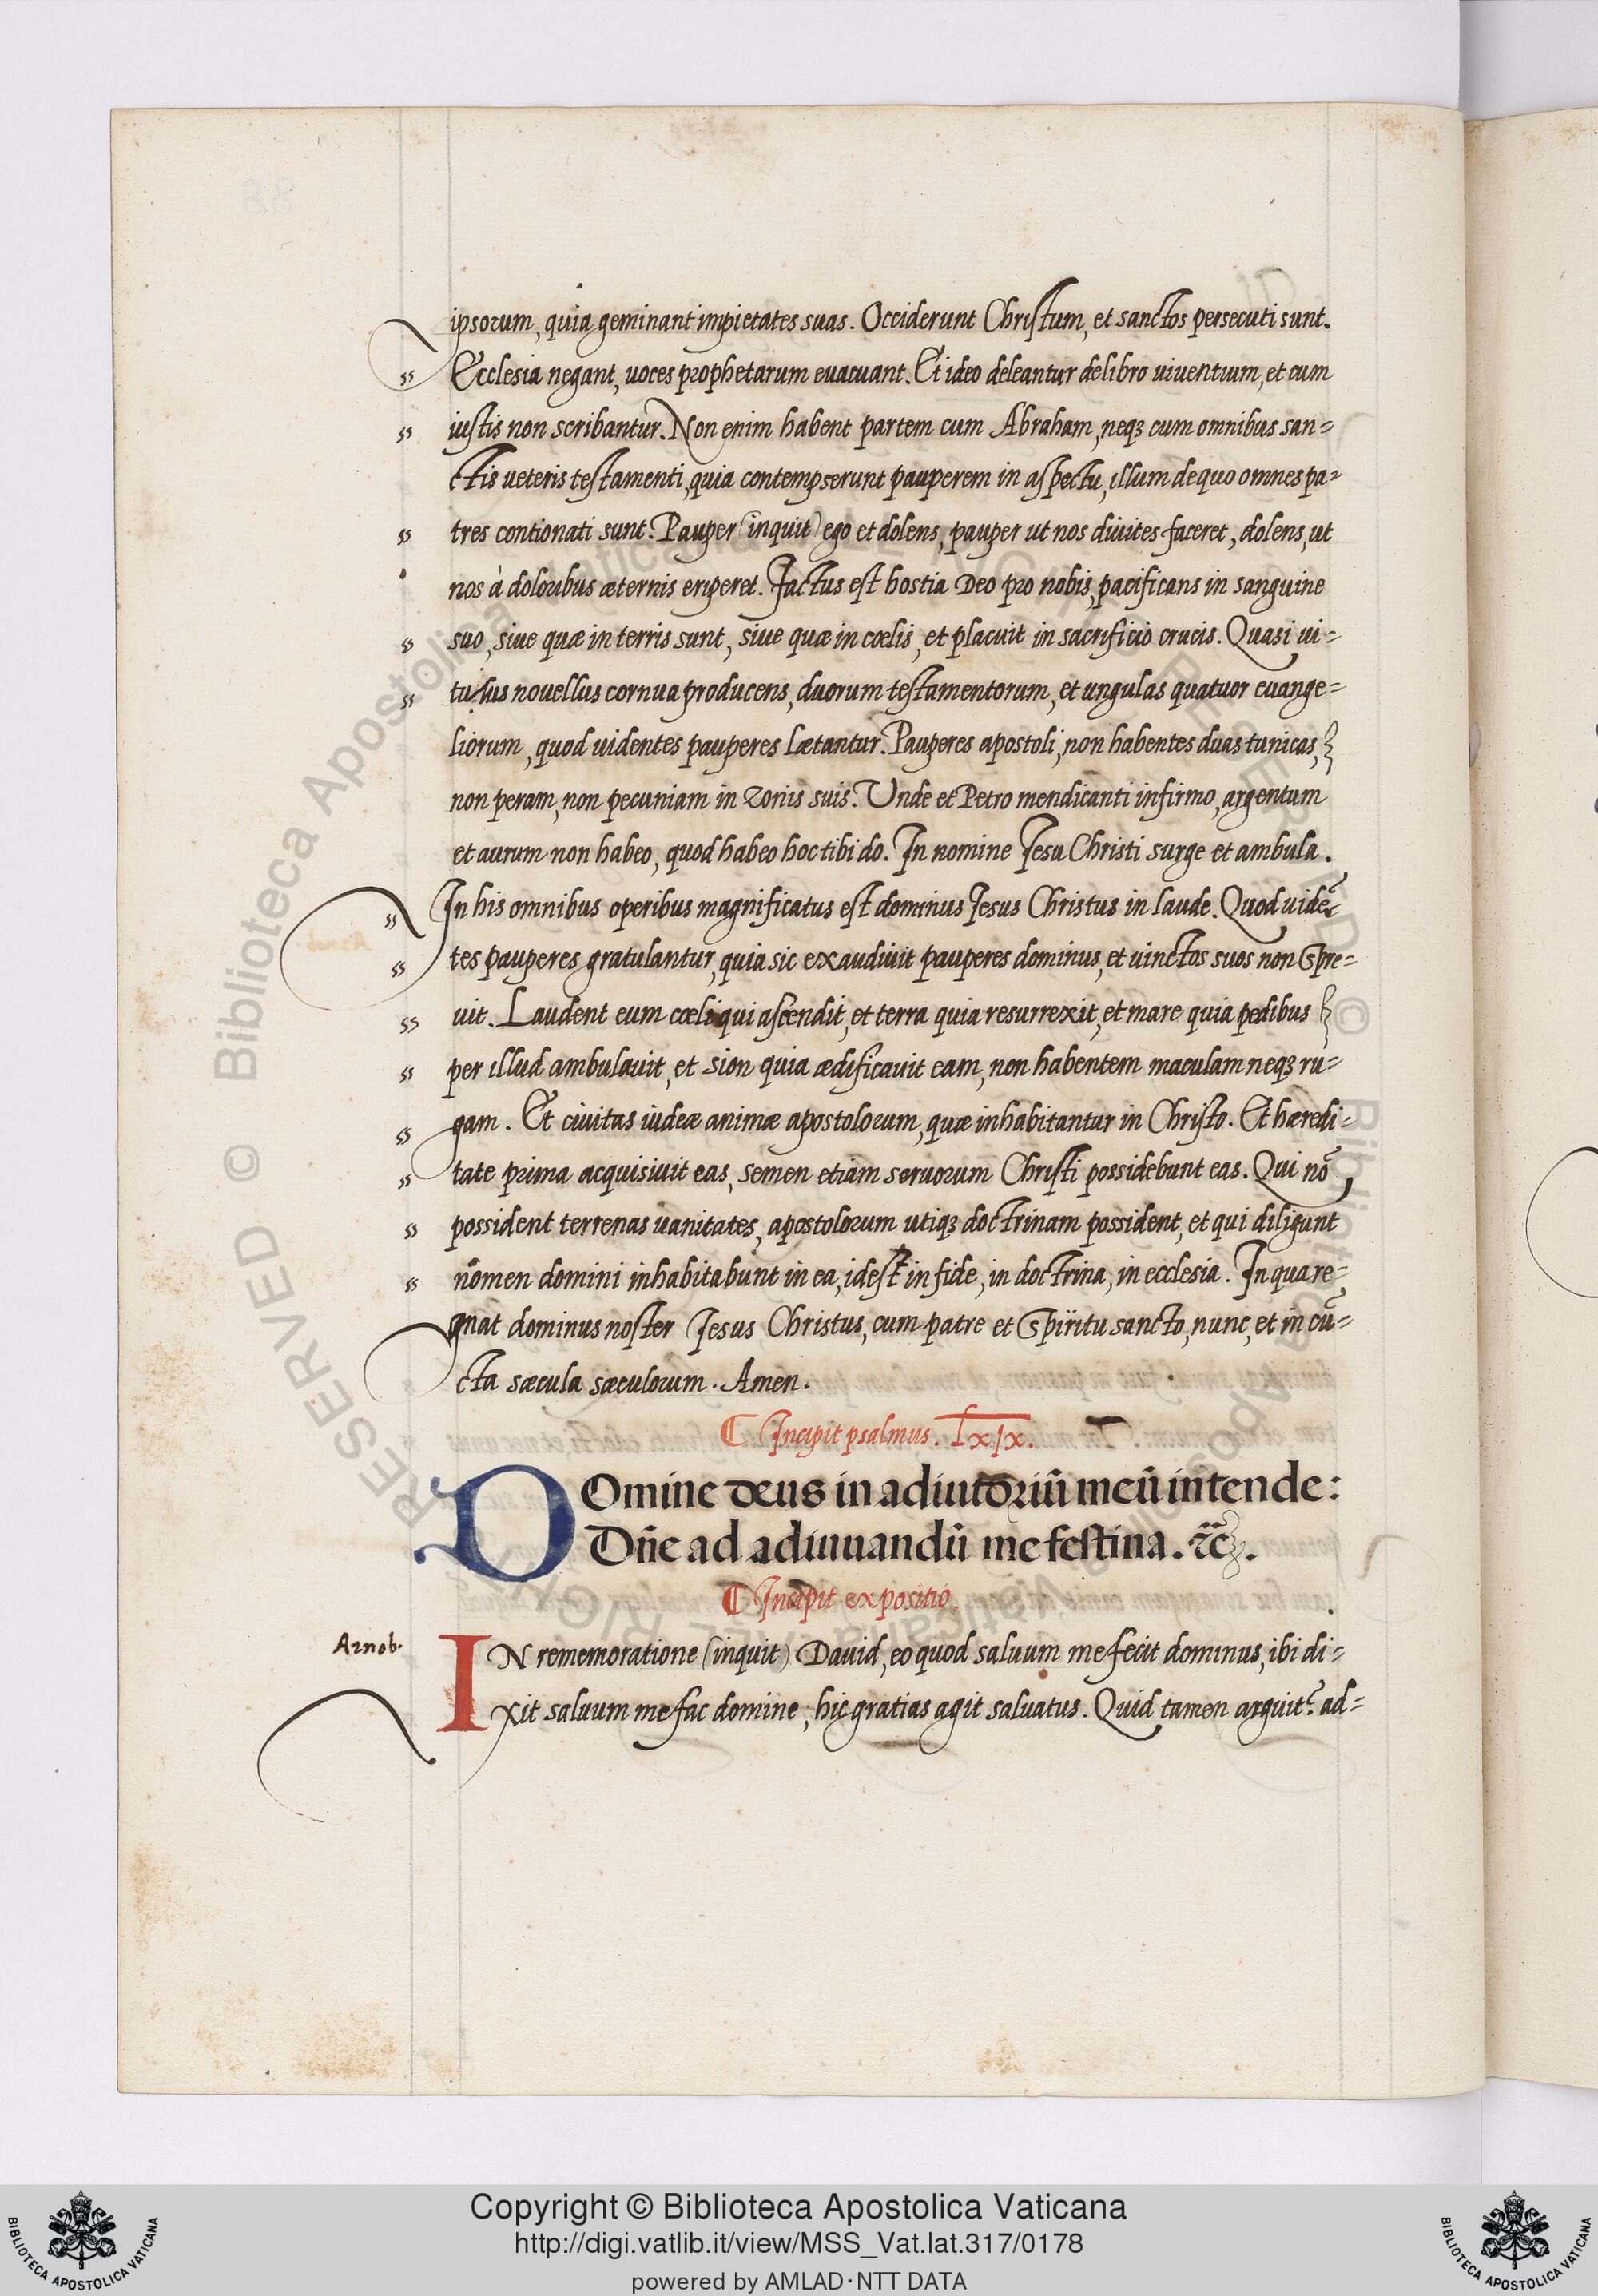 ipsorum, quia geminant impietates suas. Occiderunt Christum, et sanctos persecuti sunt.
Ecclesia negant, uoces prophetarum euacuant. Et ideo deleantur de libro uiuentium, et cum
iustis non scribantur. Non enim habent partem cum Abraham, neqȝ cum omnibus san=
ctis ueteris testamenti, quia contempserunt pauperem in aspectu, illum de quo omnes pa=
tres contionati sunt. Pauper (inquit) ego et dolens, pauper ut nos diuites faceret, dolens, ut
nos à doloribus æternis eriperet. Factus est hostia Deo pro nobis, pacificans in sanguine
suo, siue quæ in terris sunt, siue quæ in cœlis, et placuit in sacrificio crucis. Quasi ui=
tulus nouellus cornua producens, duorum testamentorum, et ungulas quatuor euange=
liorum, quod uidentes pauperes lætantur. Pauperes apostoli, non habentes duas tunicas,
non peram, non pecuniam in zonis suis. Unde et Petro mendicanti infirmo, argentum
et aurum non habeo, quod habeo hoc tibi do. In nomine Jesu Christi surge et ambula.
In his omnibus operibus magnificatus est dominus Jesus Christus in laude. Quod uidẽ=
tes pauperes gratulantur, quia sic exaudiuit pauperes dominus, et uinctos suos non spre=
uit. Laudent eum cœli qui ascendit, et terra quia resurrexit, et mare quia pedibus
per illud ambulauit, et sion quia ædificauit eam, non habentem maculam neqȝ ru=
gam. Et ciuitas iudeæ animæ apostolorum, quæ inhabitantur in Christo. Et hæredi=
tate prima acquisiuit eas, semen etiam seruorum Christi possidebunt eas. Qui nõ
possident terrenas uanitates, apostolorum utiqȝ doctrinam possident, et qui diligunt
nomen domini inhabitabunt in ea, idest in fide, in doctrina, in ecclesia. In qua re=
gnat dominus noster Jesus Christus, cum patre et Spiritu sancto, nunc, et in cũ=
cta sæcula sæculorum. Amen.
¶ Incipit psalmus. Lxix.
DOmine deus in adiutoriũ meũ intende:
Dñe ad adiuuandũ me festina. ⁊c̃.
¶ Incipit expositio.
Arnob.
IN rememoratione (inquit) Dauid, eo quod saluum me fecit dominus, ibi di=
xit saluum me fac domine, hic gratias agit saluatus. Quid tamen arguit? ad=
© Biblioteca Apostolica Vaticana
Copyright © Biblioteca Apostolica Vaticana
http://digi.vatlib.it/view/MSS_Vat.lat.317/0178
powered by AMLAD·NTT DATA
BIBLIOTECA APOSTOLICA VATICANA
BIBLIOTECA APOSTOLICA VATICANA